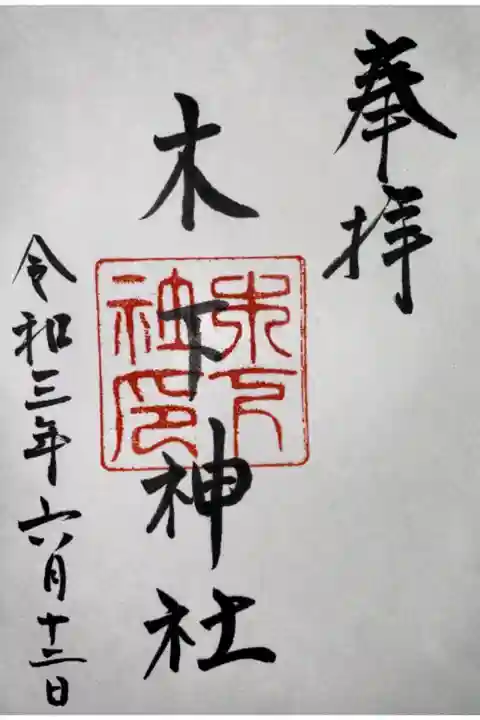 奉拝
木下神社
木下社印
令和三年六月十二日